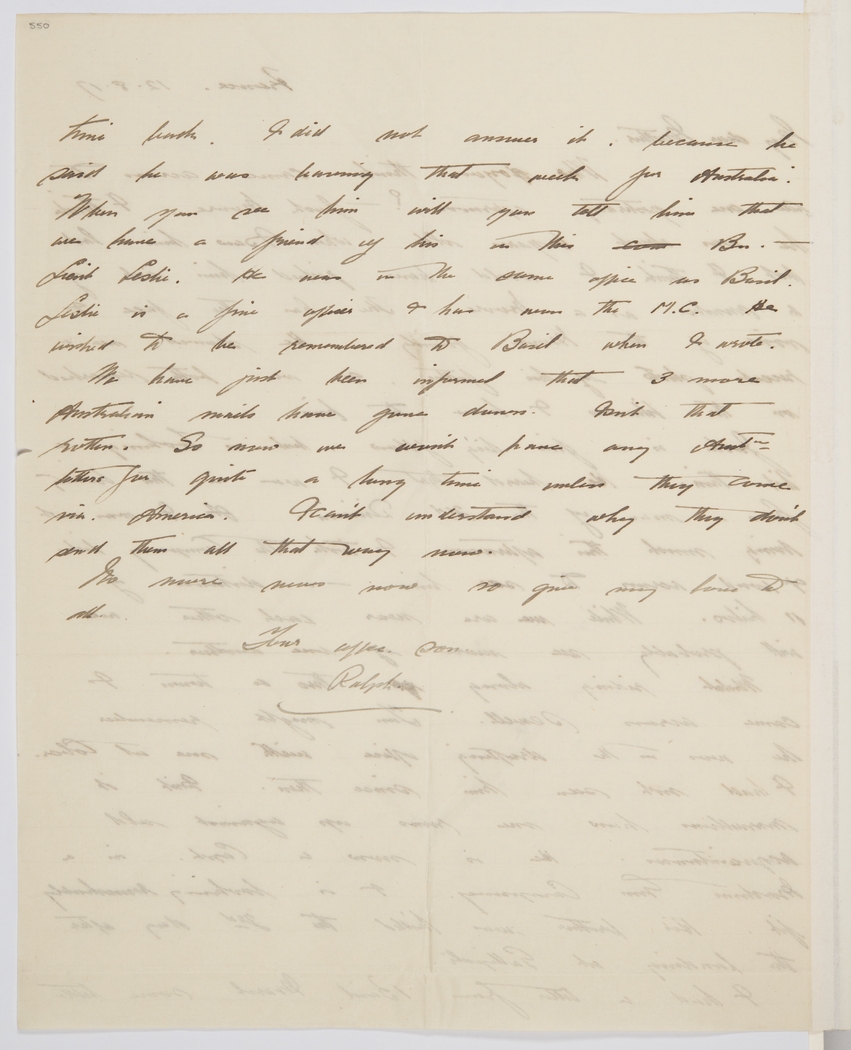 550
time back. I did not answer it, because he
said he was leaving that week for Australia.
When you see him will you tell him that
we have a friend of his in this Bn. —
Lieut Leslie. He was in the same office as Basil.
Leslie is a fine officer & has won the M.C. He
wished to be remembered to Basil when I wrote.
We have just been informed that 3 more
Australian mails have gone down. Isn't that
rotten. So now we won't have any Aust<sup>n</sup>
letters for quite a long time unless they come
via. America. I can't understand why they don't
send them all that way now.
No more news now so give my love to
all.
Your affec. son
Ralph